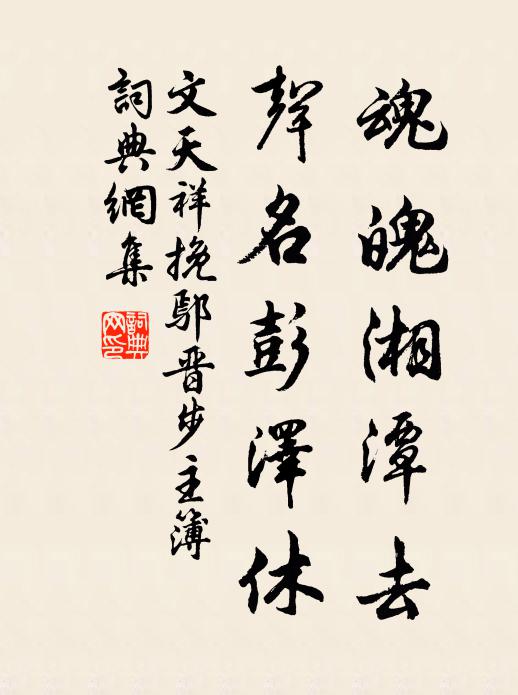 魂魄湘潭去
聲名彭澤休
文天祥挽鄢晋步主簿
詞典網集
詞典網印